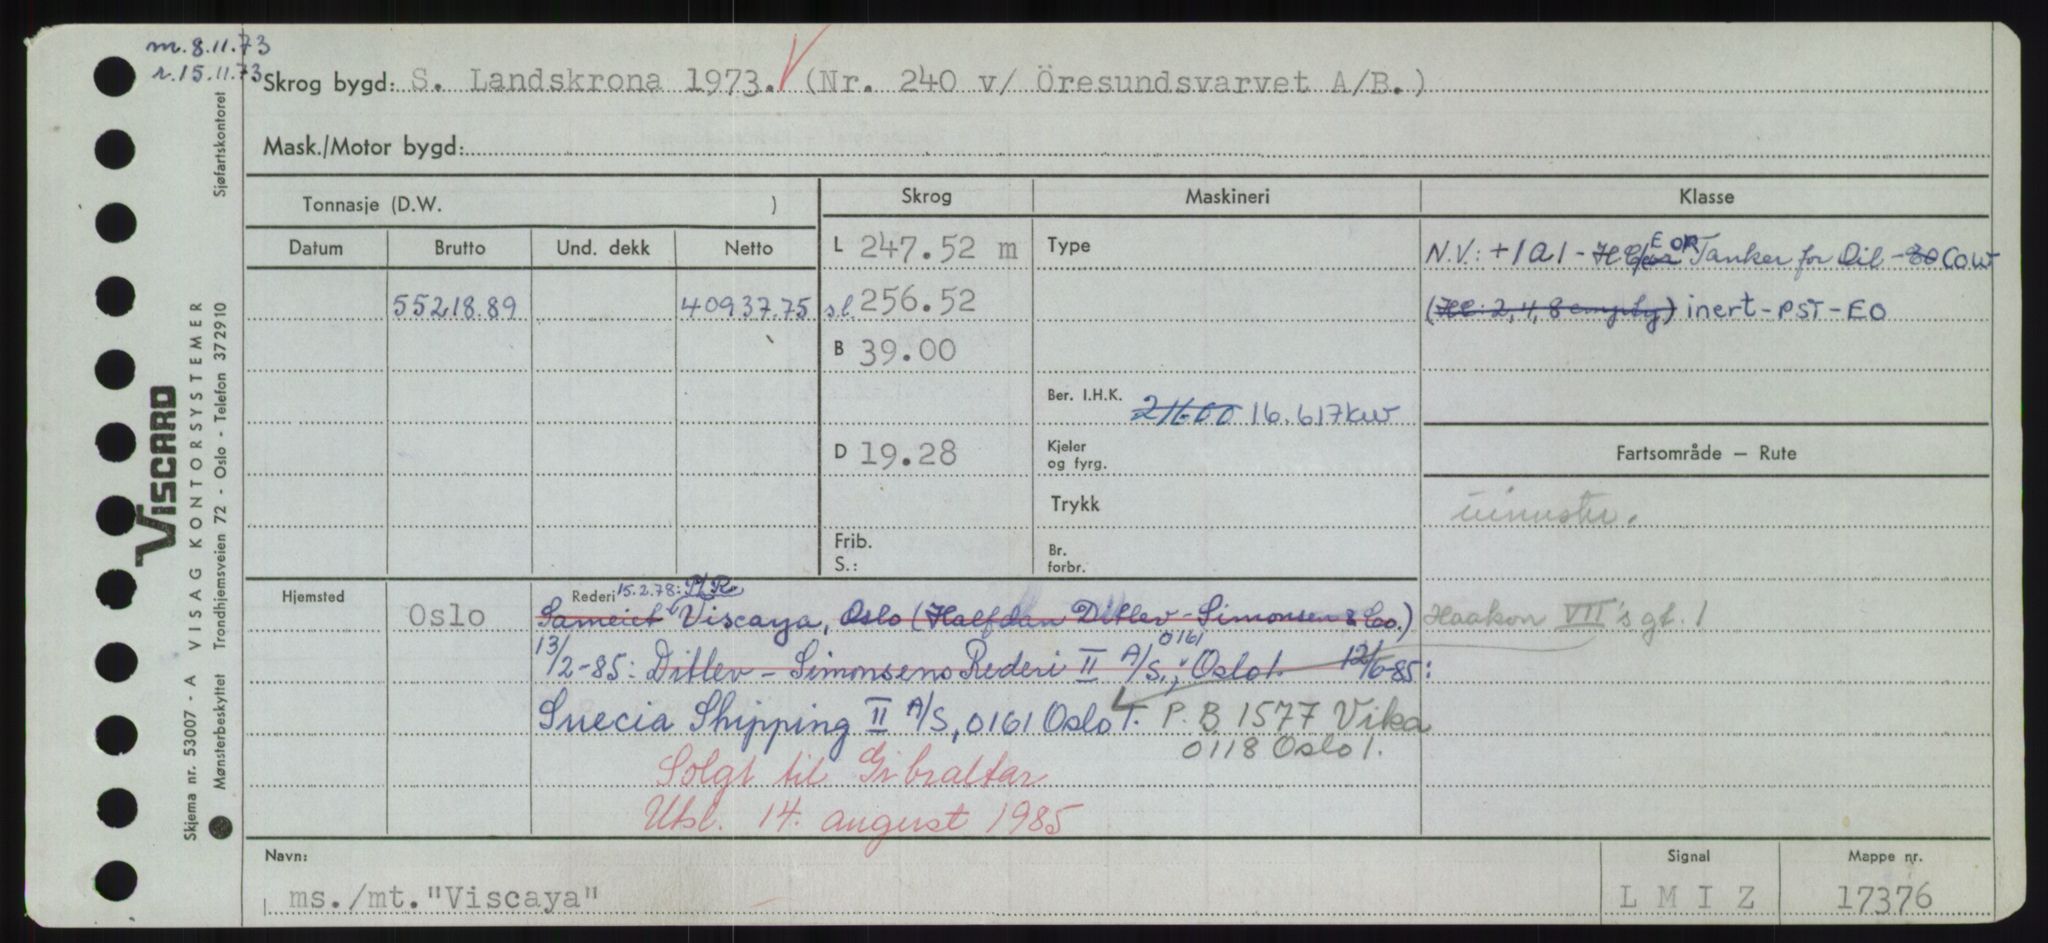 m. 8.11.73
r. 15.11.73
Skrog bygd: S. Landskrona 1973. (Nr. 240 v/ Öresundsvarvet A/B.)
Mask./Motor bygd:
Tonnasje (D.W. )
Skrog
Maskineri
Klasse
Datum
Brutto
Und. dekk
Netto
L 247.52 m
Type
N.V.: +1A1 - EOR Tanker for Oil - COW
55218.89
40937.75
s.l. 256.52
(HC: 2, 4, 8 empty) inert - PST - EO
B 39.00
Ber. I.H.K. 21600 16.617 kW
D 19.28
Kjeler og fyrg.
Fartsområde — Rute
Trykk
Frib. S.:
Br. forbr.
Hjemsted
Oslo
Rederi 15.2.78: P/R
Sameiet Viscaya, Oslo (Halfdan Ditlev-Simonsen & Co.) Haakon VII's gt. 1
13/2-85: Ditlev-Simonsens Rederi II A/S, 0161 Oslo 1. 12/6-85:
Suecia Shipping II A/S, 0161 Oslo 1. P.B 1577 Vika
0118 Oslo 1.
Solgt til Gibraltar
Utsl. 14. august 1985
Navn:
ms./mt. "Viscaya"
Signal
L M I Z
Mappe nr.
17376
VISCARD
VISAG KONTORSYSTEMER
Skjema nr. 53007 - A
Mønsterbeskyttet
Trondhjemsveien 72 - Oslo - Telefon 37 29 10
Sjøfartskontoret